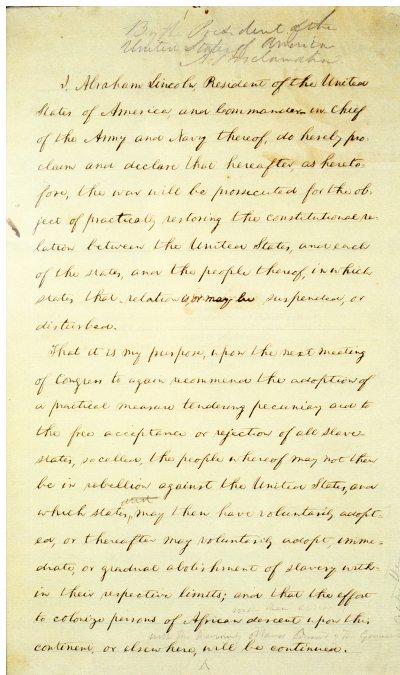 By the President of the
United States of America
A Proclamation
I, Abraham Lincoln, President of the United
States of America, and Commander-in-chief
of the Army and Navy thereof, do hereby pro-
claim and declare that hereafter, as hereto-
fore, the war will be prosecuted for the ob-
ject of practically restoring the constitutional re-
lation between the United States, and each
of the states, and the people thereof, in which
states that relation is, or may be suspended, or
disturbed.
That it is my purpose, upon the next meeting
of Congress to again recommend the adoption of
a practical measure tendering pecuniary aid to
the free acceptance or rejection of all slave-
states, so called, the people whereof may not then
be in rebellion against the United States, and
and
which states, may then have voluntarily adopt-
ed, or thereafter may voluntarily adopt, imme-
diate, or gradual abolishment of slavery with-
in their respective limits; and that the effort
to colonize persons of African descent upon this
continent, or elsewhere, will be continued.